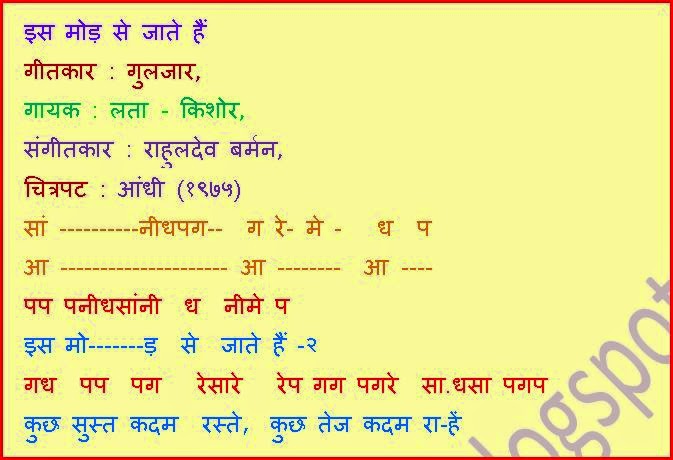 इस मोड़ से जाते हैं
गीतकार : गुलजार,
गायक : लता - किशोर,
संगीतकार : राहुलदेव बर्मन,
चित्रपट : आंधी (१९७५)
सां ----------नीधपग-- ग रे- मे - ध प
आ --------------------- आ -------- आ ----
पप पनीधसांनी ध नीमे प
इस मो-------ड़ से जाते हैं -२
गध पप पग रेसारे रेप गग पगरे सा.धसा पगप
कुछ सुस्त कदम रस्ते, कुछ तेज कदम रा-हें
logspot